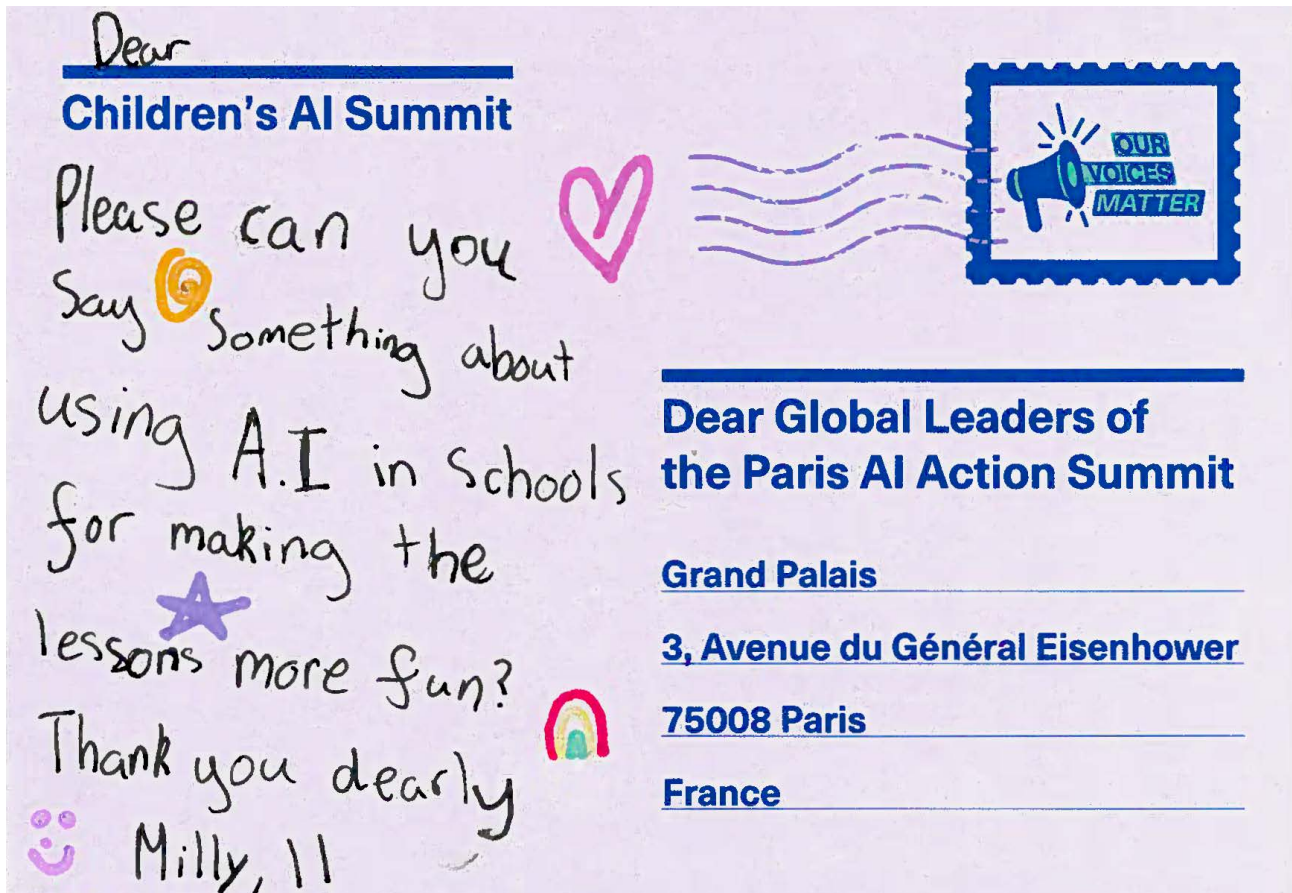 Dear
Children's AI Summit
Please can you
Say something about
using A.I in Schools
for making the
lessons more fun?
Thank you dearly
Milly, 11
OUR
VOICES
MATTER
Dear Global Leaders of
the Paris AI Action Summit
Grand Palais
3, Avenue du Général Eisenhower
75008 Paris
France